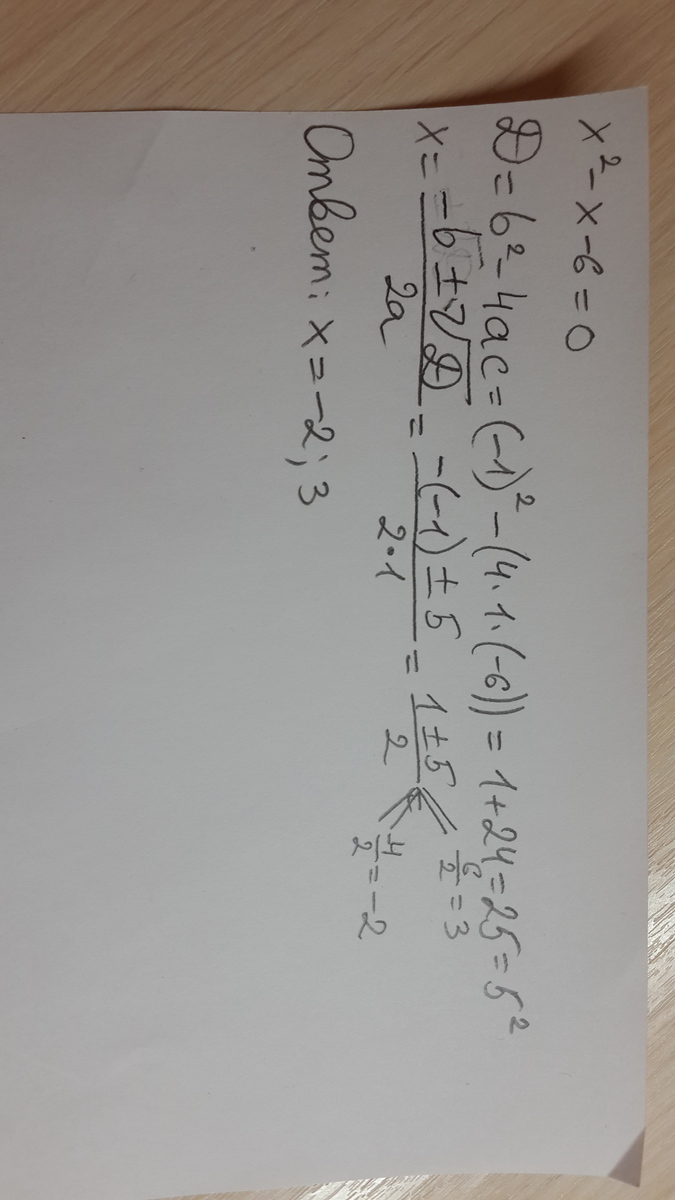 x² - x - 6 = 0
D = b² - 4ac = (-1)² - (4·1·(-6)) = 1 + 24 = 25 = 5²
x = (-b ± √D)/2a = (-(-1) ± 5)/(2·1) = (1 ± 5)/2
6/2 = 3
-4/2 = -2
Ответ: x = -2; 3